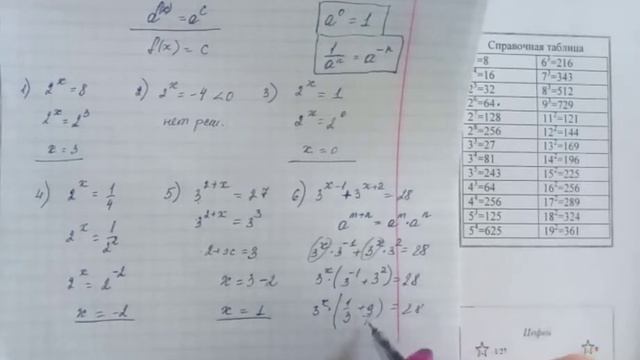 a^f(x) = a^c
f(x) = c
a^0 = 1
1/a^n = a^-n
1) 2^x = 8
2^x = 2^3
x = 3
2) 2^x = -4 < 0
нет реш.
3) 2^x = 1
2^x = 2^0
x = 0
4) 2^x = 1/4
2^x = 1/2^2
2^x = 2^-2
x = -2
5) 3^2+x = 27
3^2+x = 3^3
2+x = 3
x = 3-2
x = 1
6) 3^x-1 + 3^x+2 = 28
a^m+n = a^m · a^n
3^x · 3^-1 + 3^x · 3^2 = 28
3^x · (3^-1 + 3^2) = 28
3^x · (1/3 + 9) = 28
Справочная таблица
=8
=16
=32
=64
=128
=256
3^3=27
3^4=81
3^5=243
4^3=64
4^4=256
5^3=125
5^4=625
6^3=216
7^3=343
8^3=512
9^3=729
11^2=121
12^2=144
13^2=169
14^2=196
15^2=225
16^2=256
17^2=289
18^2=324
19^2=361